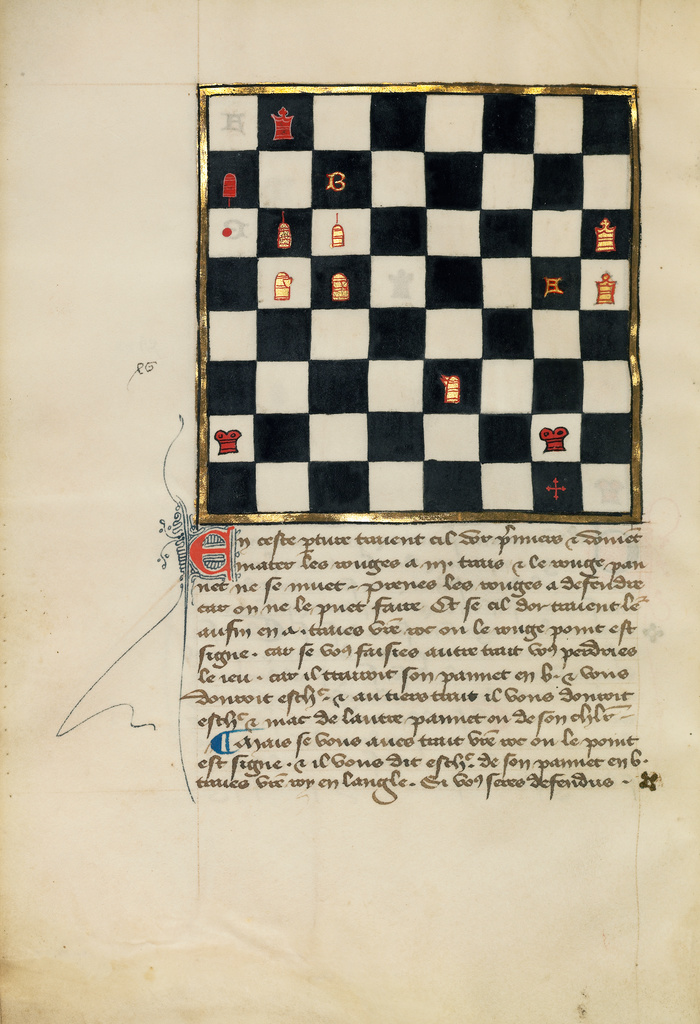 B
A
En ceste p̱ture traient cil dor p̄miers & doiuēt
mater les rouges a .iij. trais & le rouge paon
net ne se muet – prenes les rouges a defendre
car on ne le puet faire Et se cil dor traient le
aufin en .a. traies vr̄e roc ou le rouge point est
signe . car se vo9 faisies autre trait vo9 perdries
le ieu . car il trairoit son paonnet en b. & vous
donroit esch̄c . & au tiers trait il vous donroit
esch̄c & mac de lautre paonnet ou de son ch̄lr –
Mais se vous aues trait vr̄e roc ou le point
est signe . & il vous dit esch̄c . de son paonnet en b.
traies vr̄e roy en langle . Si vo9 seres defendus .